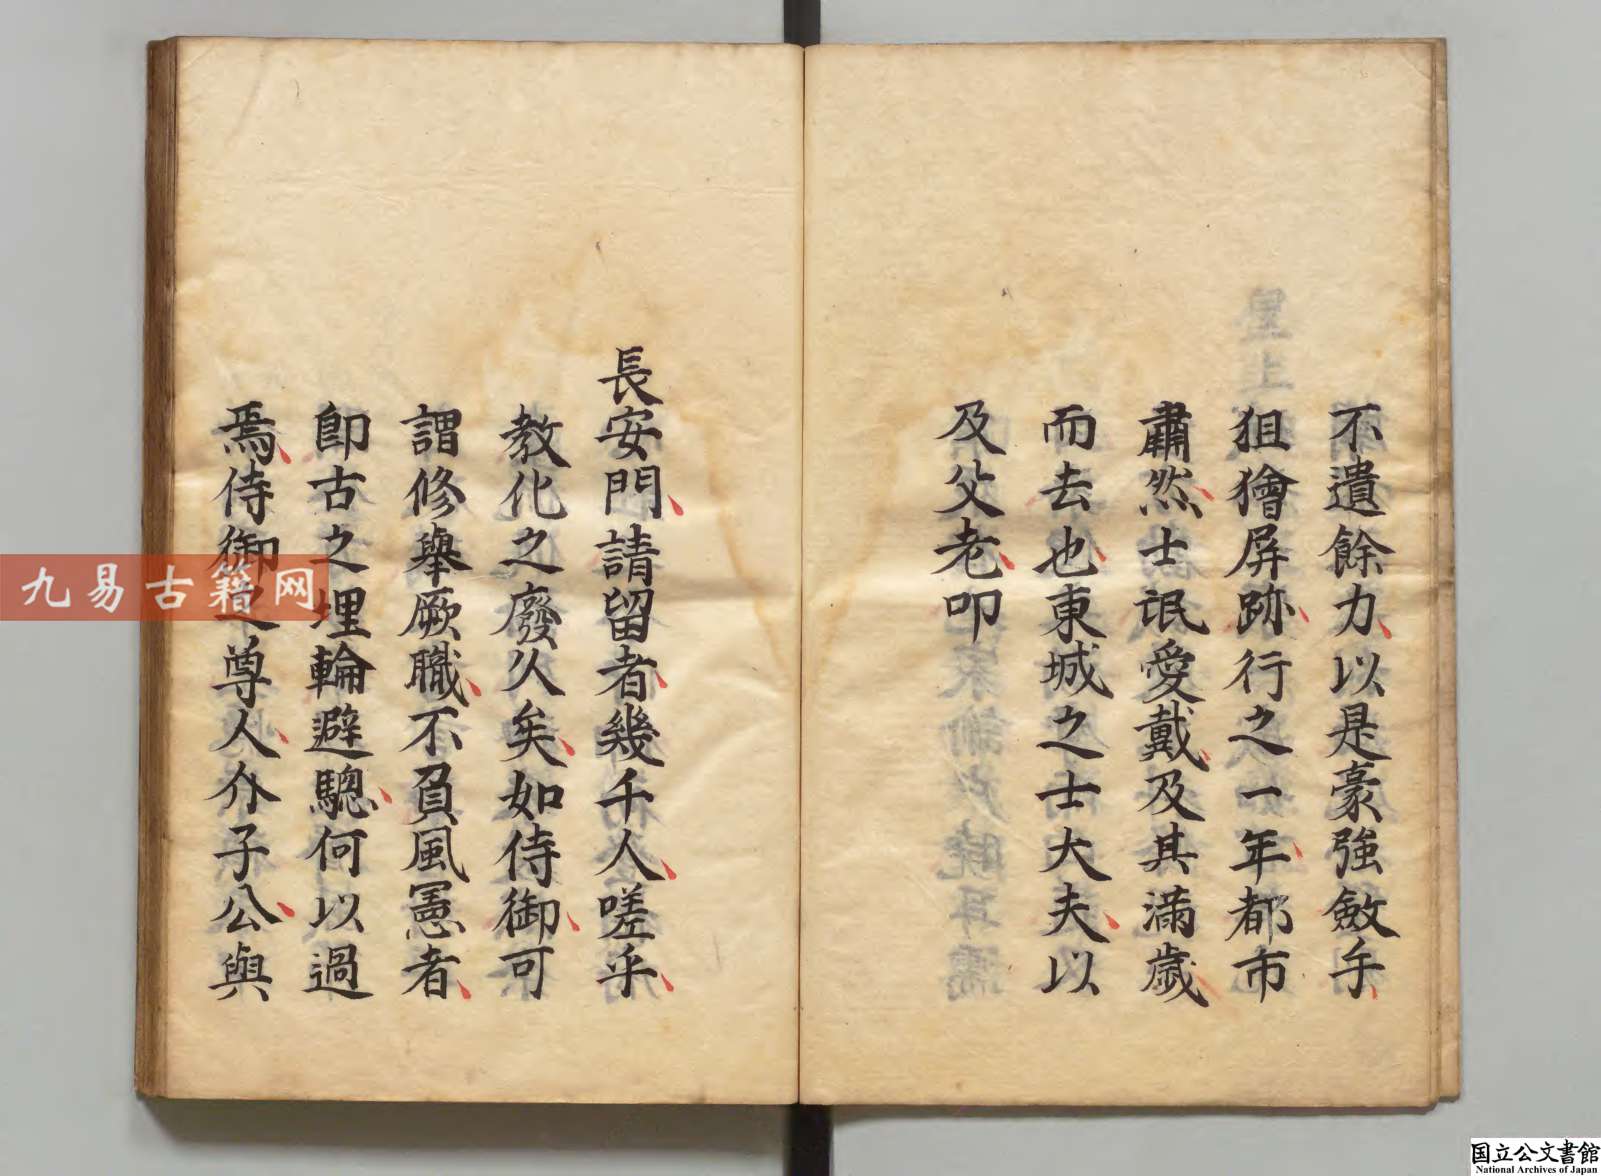 不遺餘力以是豪強斂手
狙獪屏跡行之一年都市
肅然士氓愛戴及其滿歲
而去也東城之士大夫以
及父老叩
長安門請留者幾千人嗟乎
教化之廢久矣如侍御可
謂修舉厥職不負風憲者
卽古之埋輪避驄何以過
焉侍御之尊人介子公與
九易古籍网
国立公文書館
National Archives of Japan